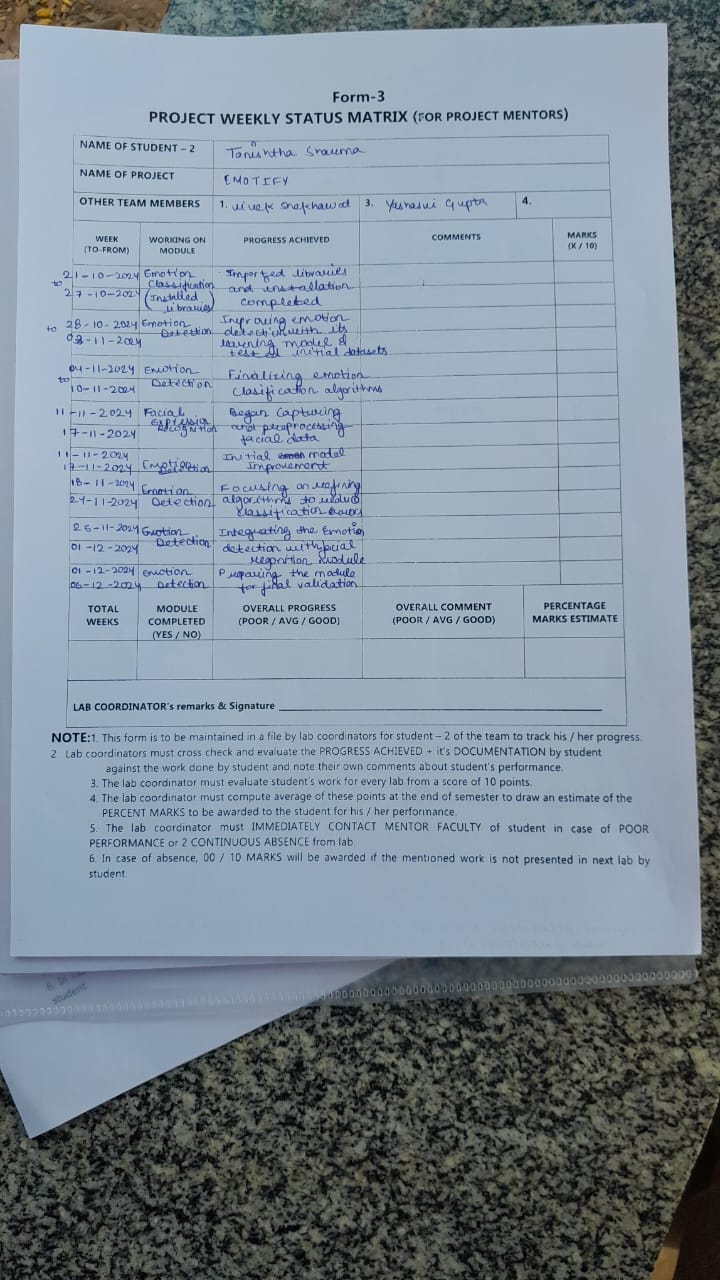 Form-3
PROJECT WEEKLY STATUS MATRIX (FOR PROJECT MENTORS)
NAME OF STUDENT – 2 Tanishtha Sharma
NAME OF PROJECT EMOTIFY
OTHER TEAM MEMBERS 1. Vivek Shekhawat 3. Yashasvi Gupta 4.
WEEK (TO-FROM) WORKING ON MODULE PROGRESS ACHIEVED COMMENTS MARKS (X / 10)
21-10-2024 Emotion Imported libraries
to Classification and installation
27-10-2024 (Installed libraries) completed
28-10-2024 Emotion Improving emotion
to Detection detection with its
03-11-2024 learning model &
test initial datasets
04-11-2024 Emotion Finalizing emotion
to Detection
10-11-2024 clasification algorithms
11-11-2024 Facial Began Capturing
Expression and preprocessing
17-11-2024 Recognition facial data
11-11-2024 Initial model
17-11-2024 Emotion Detection Improvement
18-11-2024 Emotion Focusing on refining
24-11-2024 Detection algorithms to reduce
classification errors
25-11-2024 Emotion Integrating the Emotion
01-12-2024 Detection detection with facial
module
01-12-2024 Emotion Preparing the module
06-12-2024 Detection for final validation
TOTAL WEEKS MODULE COMPLETED (YES / NO) OVERALL PROGRESS (POOR / AVG / GOOD) OVERALL COMMENT (POOR / AVG / GOOD) PERCENTAGE MARKS ESTIMATE
LAB COORDINATOR's remarks & Signature
NOTE:1. This form is to be maintained in a file by lab coordinators for student – 2 of the team to track his / her progress.
2 Lab coordinators must cross check and evaluate the PROGRESS ACHIEVED + it's DOCUMENTATION by student
against the work done by student and note their own comments about student's performance.
3. The lab coordinator must evaluate student's work for every lab from a score of 10 points.
4. The lab coordinator must compute average of these points at the end of semester to draw an estimate of the
PERCENT MARKS to be awarded to the student for his / her performance.
5. The lab coordinator must IMMEDIATELY CONTACT MENTOR FACULTY of student in case of POOR
PERFORMANCE or 2 CONTINUOUS ABSENCE from lab.
6. In case of absence, 00 / 10 MARKS will be awarded if the mentioned work is not presented in next lab by
student.
student